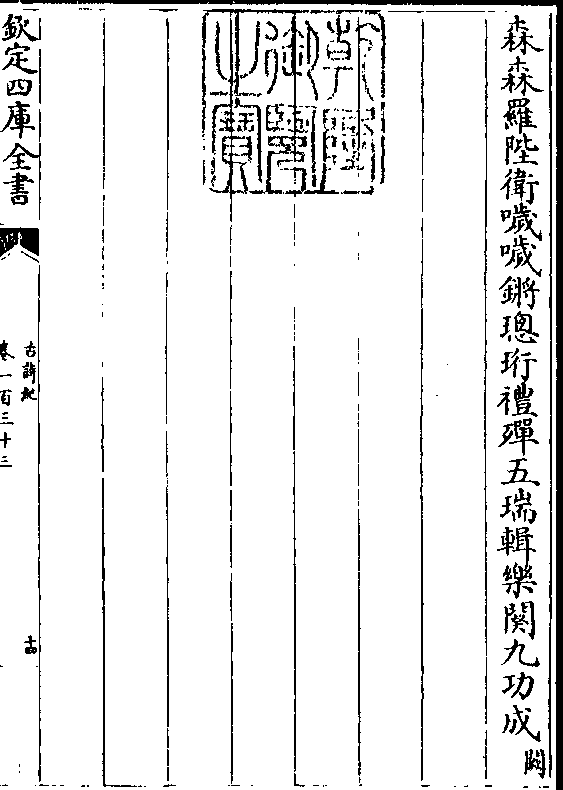 森森羅陛衛噦噦鏘璁珩禮殫五瑞輯樂闋九功成闕
乾隆
御覽
之寶
欽定四庫全書
古詩紀
卷一百三十三
十四